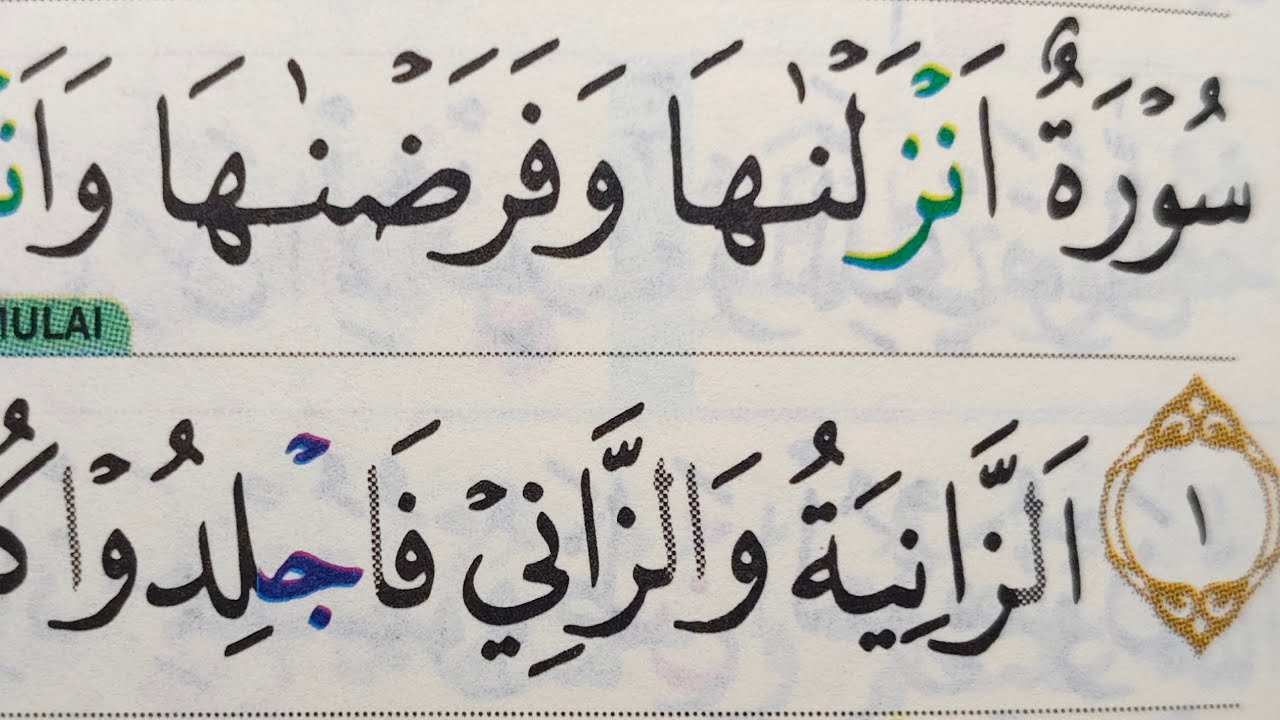 سُوْرَةٌ اَنْزَلْنٰهَا وَفَرَضْنٰهَا وَاَنْ
MULAI
١ اَلزَّانِيَةُ وَالزَّانِيْ فَاجْلِدُوْا